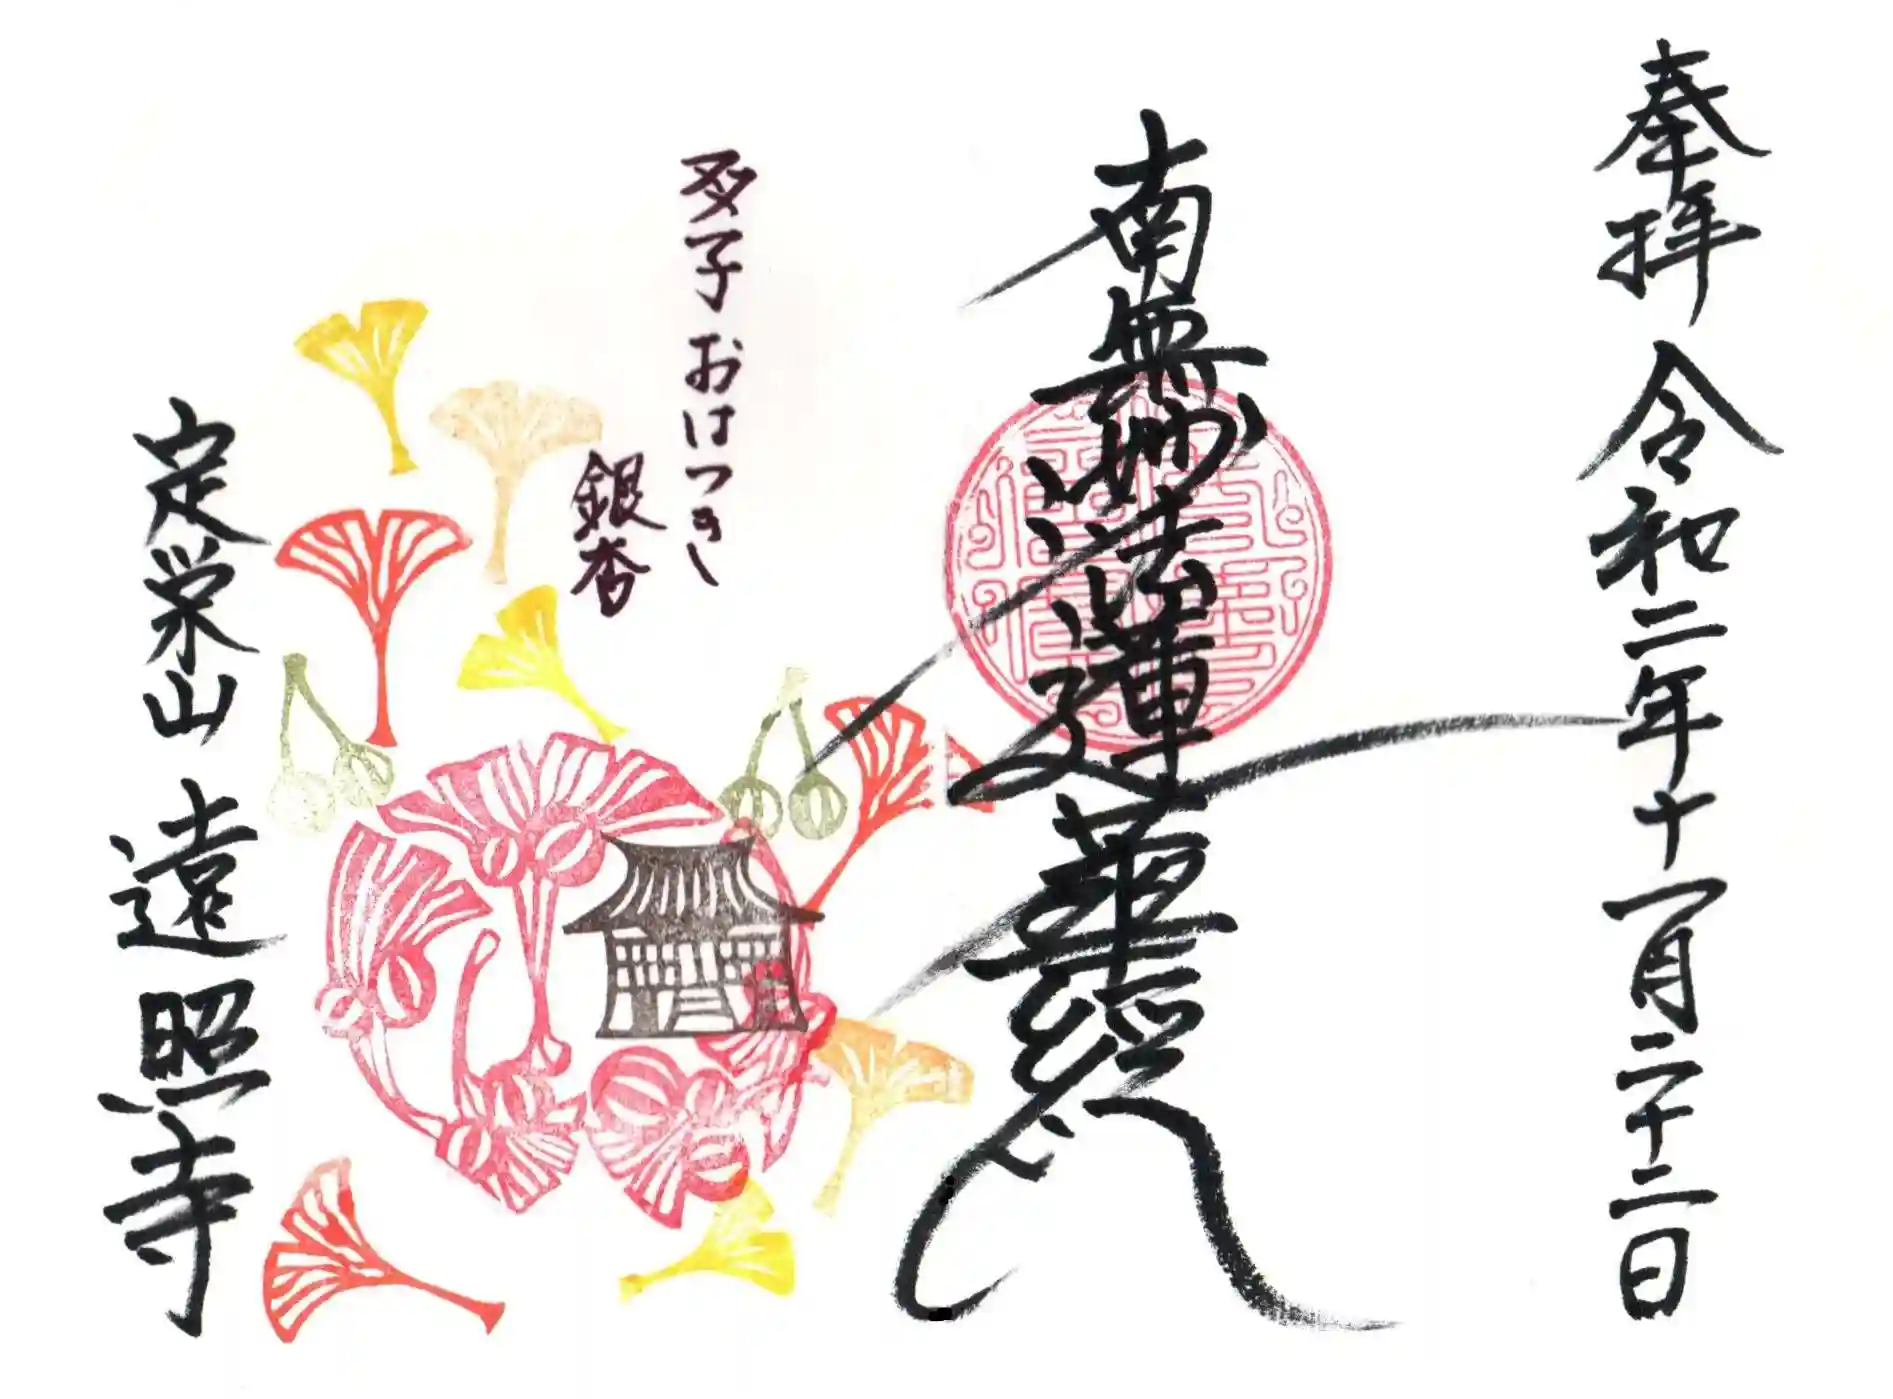 奉拝 令和二年十一月二十二日
南無妙法蓮華経
多子おはつき
銀杏
定栄山 遠照寺